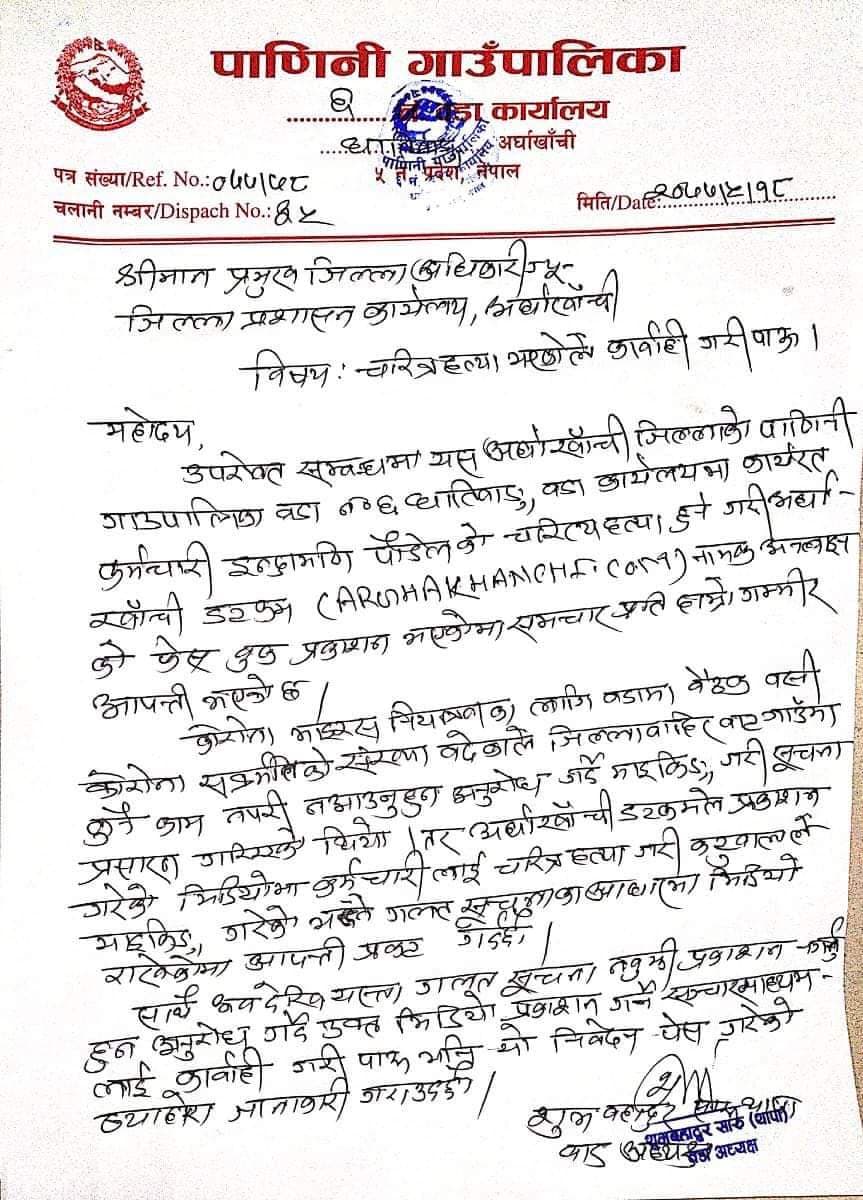 पाणिनी गाउँपालिका
६ नं वडा कार्यालय
अर्घाखाँची
५ नं. प्रदेश, नेपाल
पत्र संख्या/Ref. No.: ०७७/७८
चलानी नम्बर/Dispach No.: ६५
मिति/Date: २०७७/५/१८
श्रीमान प्रमुख जिल्ला अधिकारी ज्यू-
जिल्ला प्रशासन कार्यलय, अर्घाखाँची
विषय: चरित्र हत्या भएकोले कार्वाही गरी पाऊ ।
महोदय,
उपरोक्त सम्बन्धमा यस अर्घाखाँची जिल्लाको पाणिनी
गाउपालिका वडा नं ६ वडा कार्यलयमा कार्यरत
कर्मचारी इन्द्रमणि पौडेलको चरित्र हत्या हुने गरी अर्घा-
खाँची डटकम (ARGHAKHANCHI.COM) नामक अनलाइन
को फेस बुक प्रकाशन भएकोमा समचार प्रति हाम्रो गम्भीर
आपत्ती भएको छ ।
कोरोना भाइरस नियन्त्रणका लागि वडामा बैठक वसी
कोरोना संक्रमितको संख्या बढेकाले जिल्ला वाहिर वाट गाउँमा
कुनै काम नआउनुहुन अनुरोध गर्दै माइकिङ गरी सूचना
प्रसारन गरिएको थियो । तर अर्घाखाँची डटकमले प्रकाशन
गरेको भिडियोमा कर्मचारी लाई चरित्र हत्या गरी
माइकिङ गरेको भन्ने गलत सूचनाका आधारमा भिडियो
राखेकोमा आपत्ती प्रकट गर्दछौं ।
साथै अव देखि यस्ता गलत सूचना नवुझी प्रकाशन गर्नु
हुन अनुरोध गर्दै उक्त भिडियो प्रकाशन गर्ने सञ्चारमाध्यम-
लाई कार्वाही गरी पाऊ भनि यो निवेदन पेस गरेको
व्याहोरा जानकारी गराउदछौं ।
शुभ वहादुर सारु थापा
शुभ बहादुर सारु (थापा)
वाड अध्यक्ष
वडा अध्यक्ष